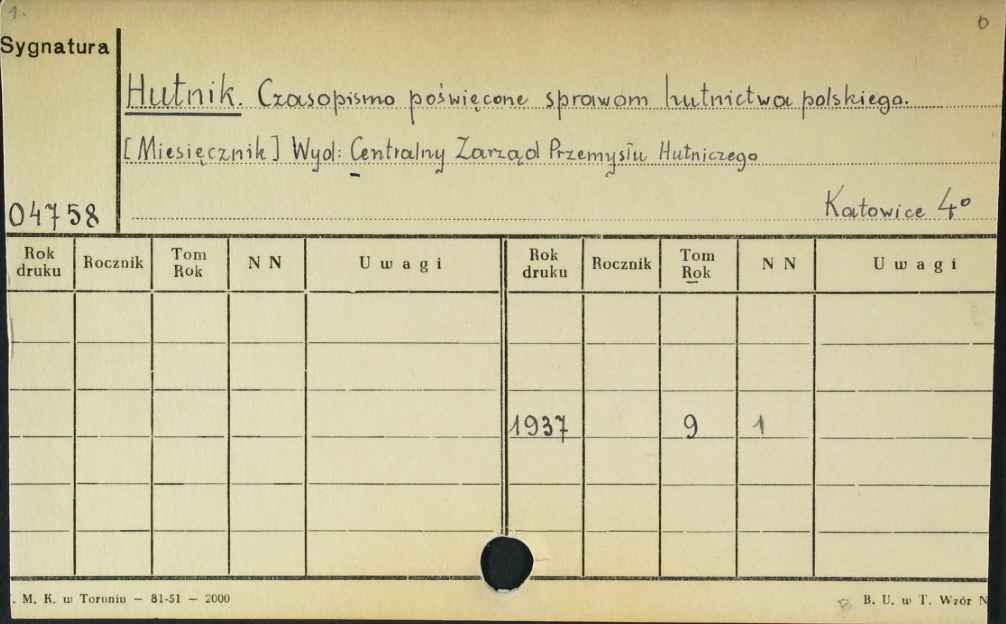 1.
Sygnatura
Hutnik. Czasopismo poświęcone sprawom hutnictwa polskiego.
[Miesięcznik] Wyd: Centralny Zarząd Przemysłu Hutniczego
04758
Katowice 4°
Rok druku Rocznik Tom Rok N N Uwagi Rok druku Rocznik Tom Rok N N Uwagi
1937 9 1
. M. K. w Toruniu — 81-51 — 2000
B. U. w T. Wzór N